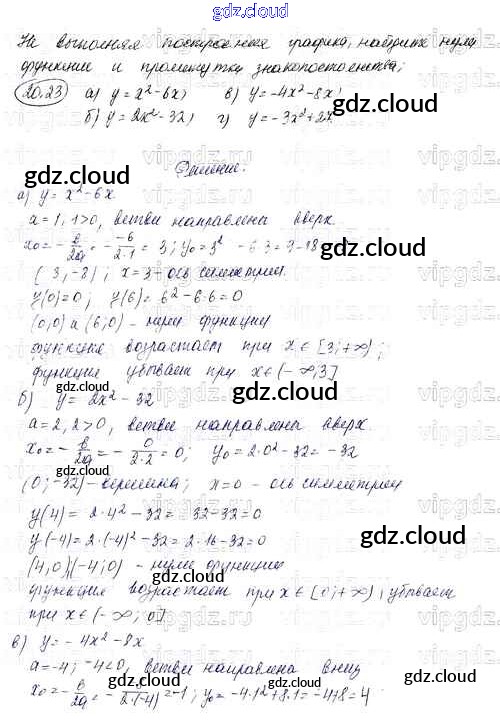 gdz.cloud
Не выполняя построения графика, найдите нули
функции и промежутки знакопостоянства;
20.23 а) y = x² - 6x; в) y = -4x² - 8x;
б) y = 2x² - 32; г) y = -3x² + 2x
Решение.
а) y = x² - 6x
a = 1, 1>0, ветви направлена вверх.
x₀ = - b/2a = - -6/2·1 = 3; y₀ = 3² - 6·3 = 9 - 18
(3, -8); x = 3 - ось симметрии.
y(0) = 0; y(6) = 6² - 6·6 = 0
(0;0) и (6;0) - нули функции
функция возрастает при x ∈ [3; +∞);
функция убывает при x ∈ (-∞; 3]
б) y = 2x² - 32
a = 2, 2>0, ветви направлена вверх.
x₀ = - b/2a = - 0/2·2 = 0; y₀ = 2·0² - 32 = -32
(0; -32) - вершина; x = 0 - ось симметрии
y(4) = 2·4² - 32 = 32 - 32 = 0
y(-4) = 2·(-4)² - 32 = 2·16 - 32 = 0
(4,0) (-4;0) - нули функции
функция возрастает при x ∈ [0; +∞), убывает
при x ∈ (-∞; 0]
в) y = -4x² - 8x
a = -4; -4<0, ветви направлена вниз
x₀ = - b/2a = - /2·(-4) = -1; y₀ = -4·1² + 8·1 = -4+8 = 4